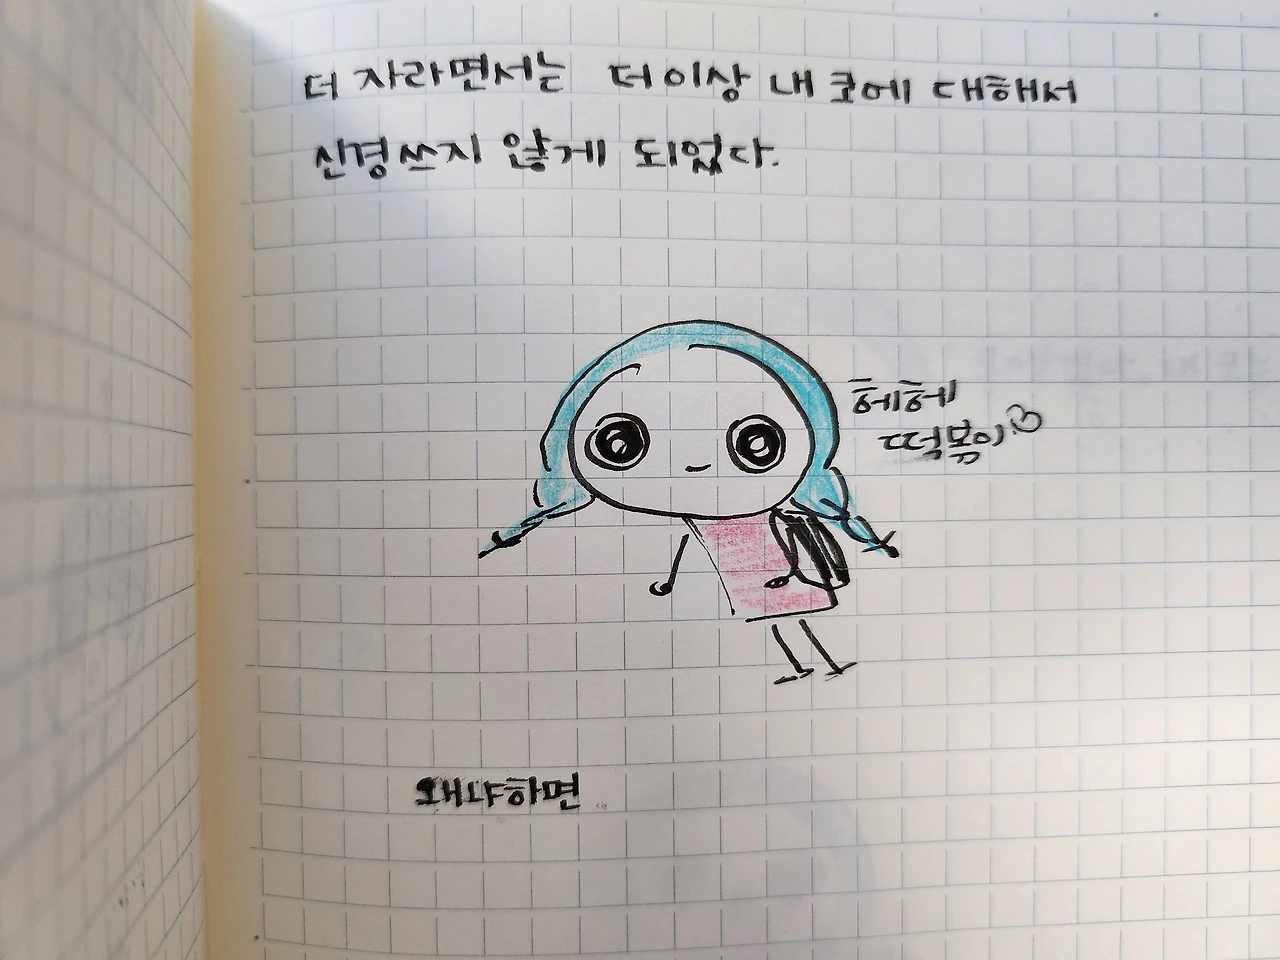 더 자라면서는 더이상 내 코에 대해서
신경쓰지 않게 되었다.
헤헤
떡볶이
왜냐하면